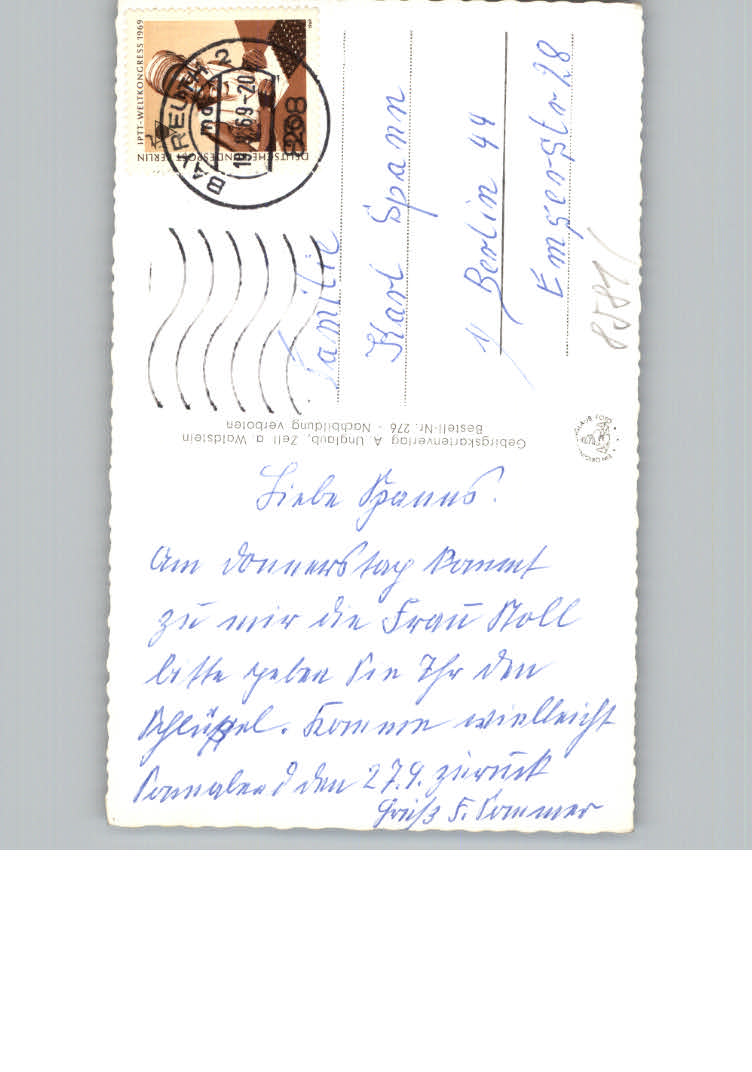 IPTT-WELTKONGRESS 1969
DEUTSCHE BUNDESPOST BERLIN
BAYREUTH 2
69-20
Familie
Karl Spann
1/ Berlin 44
Emser-Str 28
8581/
Gebirgskartenverlag A. Unglaub, Zell a. Waldstein
Bestell-Nr. 276 - Nachbildung verboten
Liebe Spanns.
Am Donnerstag kommt
zu mir die Frau Noll
bitte geben Sie Ihr den
Schlüssel. Komme vielleicht
Sonnabend den 27.9. zurück
Gruß F. Sommer